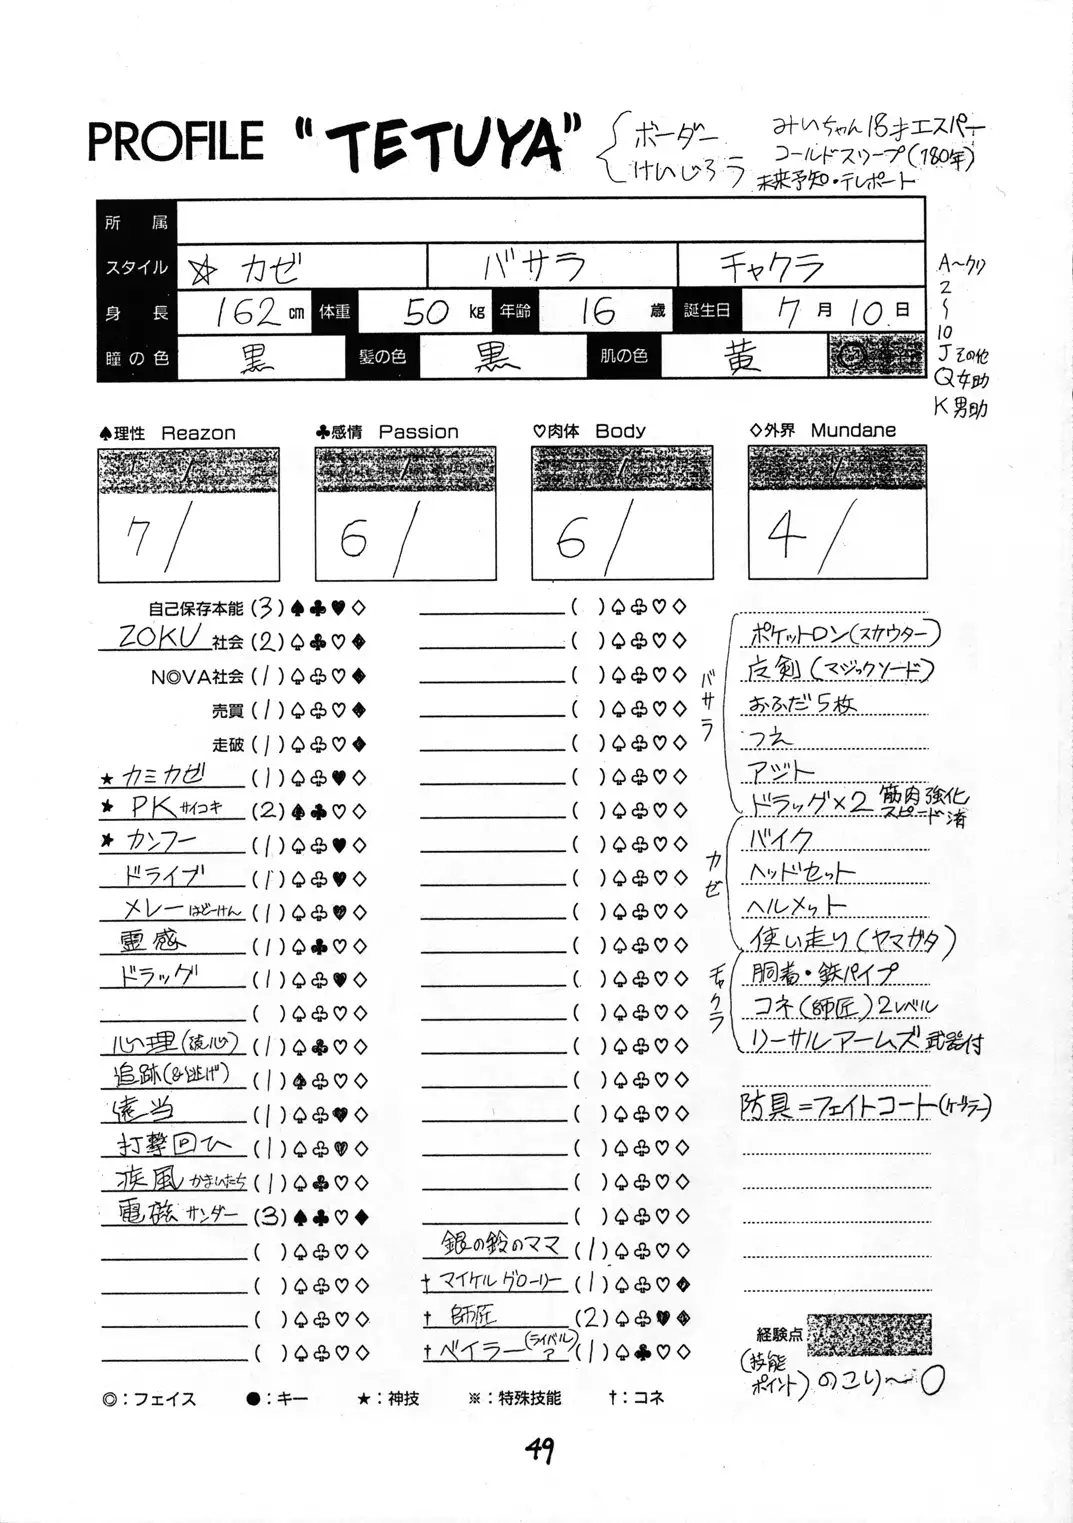 PROFILE "TETUYA"
ボーダー
けいじろう
みいちゃん18才エスパー
コールドスリープ(180年)
未来予知・テレポート
所属
スタイル ☆カゼ バサラ チャクラ
身長 162cm 体重 50kg 年齢 16歳 誕生日 7月10日
瞳の色 黒 髪の色 黒 肌の色 黄
A〜クリ
2
〜
10
Jその他
Q女助
K男助
♠理性 Reazon ♣感情 Passion ♡肉体 Body ◇外界 Mundane
7/ 6/ 6/ 4/
自己保存本能(3)♠♣♥◇
ZOKU社会(2)♤♣♡♦
N◎VA社会(1)♤♧♡♦
売買(1)♤♧♡♦
走破(1)♤♧♡♦
★カミカゼ(1)♤♧♥◇
★PKサイコキ(2)♠♣♡◇
★カンフー(1)♤♧♥◇
ドライブ(1)♤♧♥◇
メレーはどーけん(1)♤♧♥◇
霊感(1)♤♣♡◇
ドラッグ(1)♤♧♥◇
( )♤♧♡◇
心理(読心)(1)♤♣♡◇
追跡(&逃げ)(1)♠♧♡◇
遠当(1)♤♧♥◇
打撃回ヒ(1)♤♧♥◇
疾風かまいたち(1)♤♣♡◇
電磁サンダー(3)♠♣♡♦
( )♤♧♡◇
( )♤♧♡◇
( )♤♧♡◇
( )♤♧♡◇
( )♤♧♡◇
( )♤♧♡◇
( )♤♧♡◇
( )♤♧♡◇
( )♤♧♡◇
( )♤♧♡◇
( )♤♧♡◇
( )♤♧♡◇
( )♤♧♡◇
( )♤♧♡◇
( )♤♧♡◇
( )♤♧♡◇
( )♤♧♡◇
( )♤♧♡◇
( )♤♧♡◇
( )♤♧♡◇
( )♤♧♡◇
( )♤♧♡◇
( )♤♧♡◇
銀の鈴のママ(1)♤♧♡◇
†マイケルグローリー(1)♤♧♡♦
†師匠(2)♤♧♥♦
†ベイラー(ライバル?)(1)♤♣♡◇
バサラ
ポケットロン(スカウター)
反剣(マジックソード)
おふだ5枚
つえ
アジト
ドラッグ×2 筋肉強化
スピード済
カゼ
バイク
ヘッドセット
ヘルメット
使い走り(ヤマガタ)
チャクラ
胴着・鉄パイプ
コネ(師匠)2レベル
リーサルアームズ武器付
防具=フェイトコート(ケブラー)
経験点
(技能ポイント)のこり〜0
◎:フェイス ●:キー ★:神技 ※:特殊技能 †:コネ
49